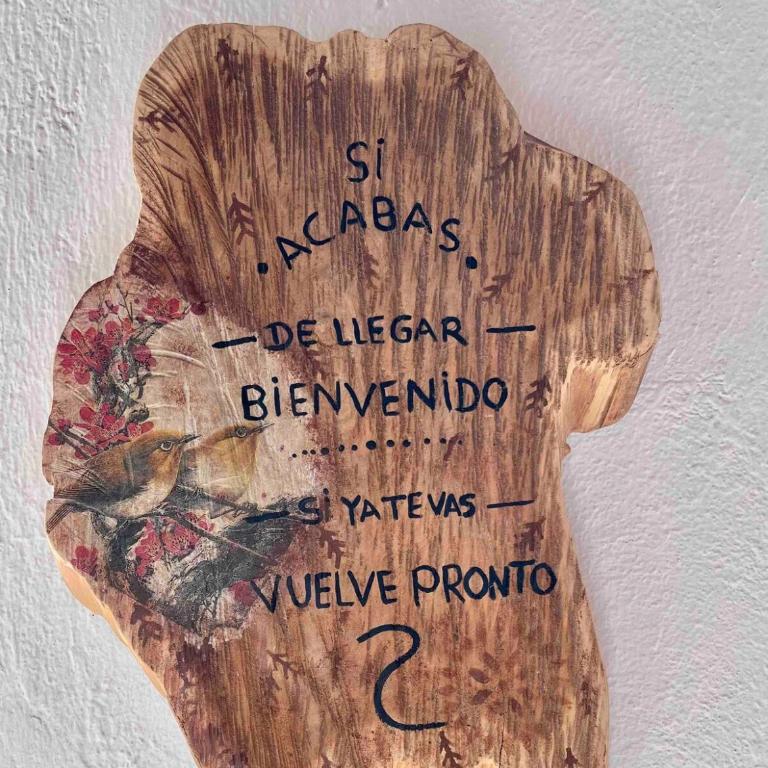 Si
ACABAS
DE LLEGAR
BiENVENiDO
Si YA TE VAS
VUELVE PRONTO